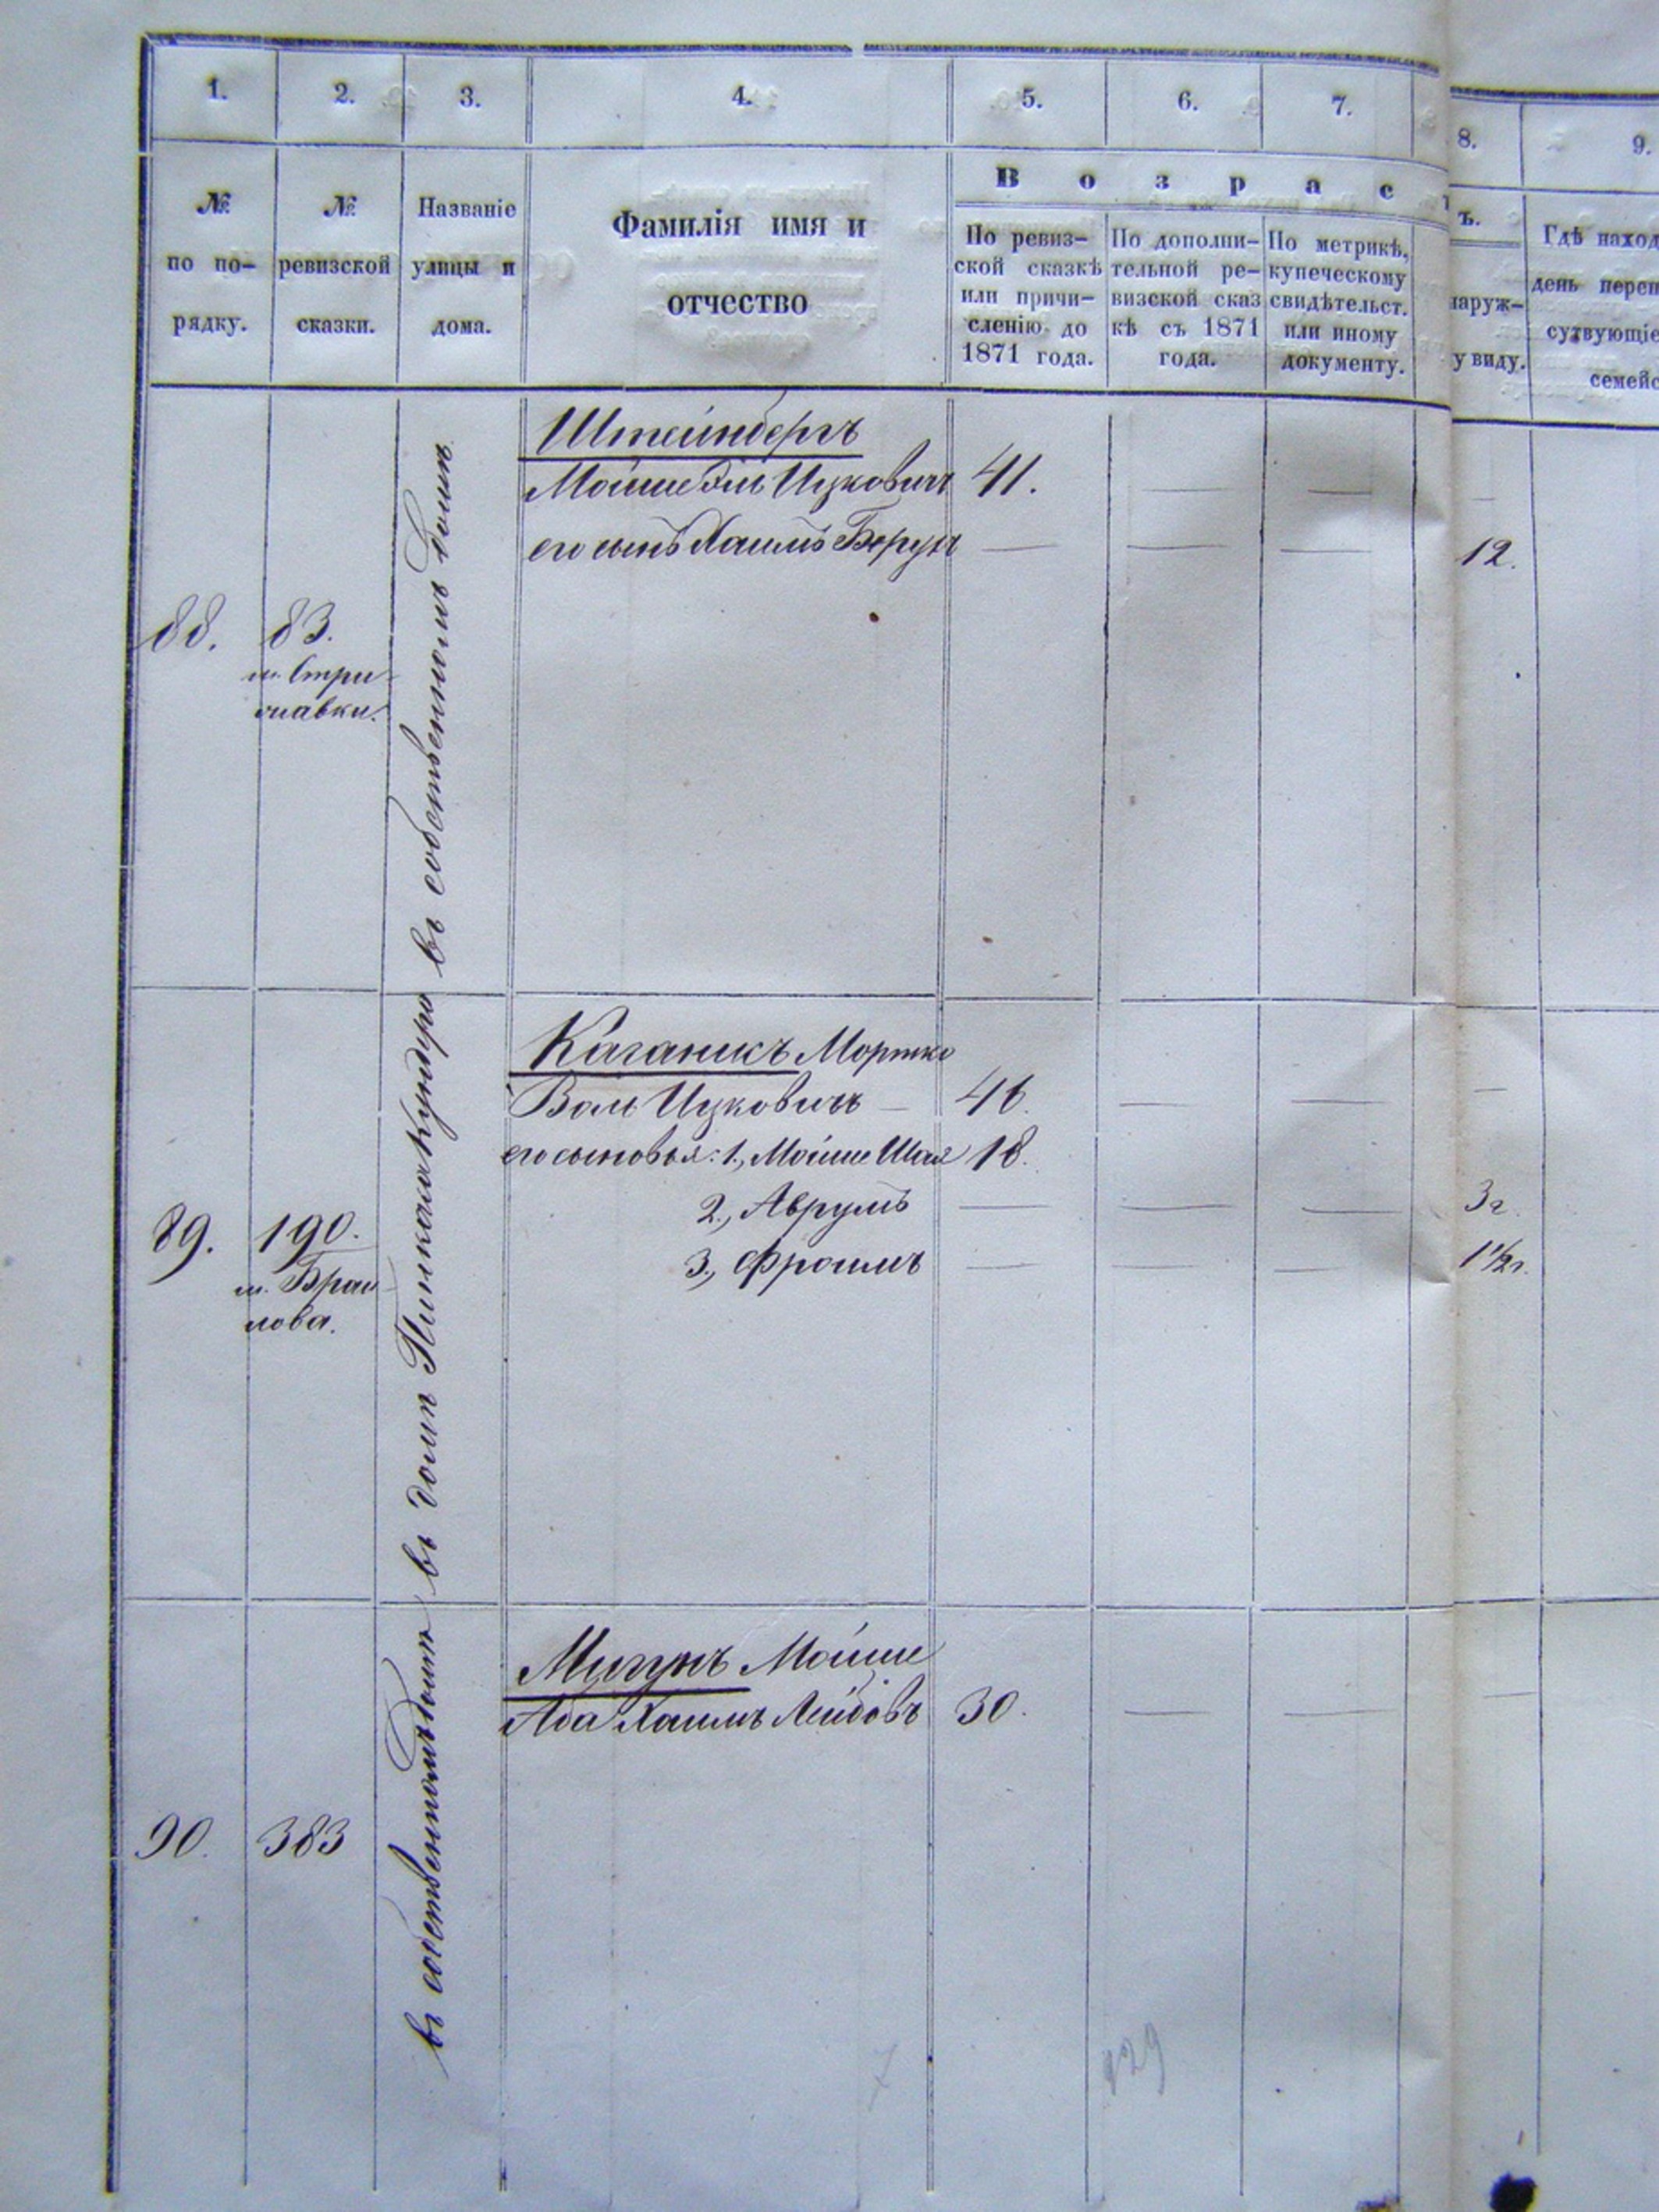 1. 2. 3. 4. 5. 6. 7. 8. 9.
№ по по-
рядку.
№
ревизской
сказки.
Названіе
улицы и
дома.
Фамилія имя и
отчество
В о з р а с т ъ.
По ревиз-
ской сказкѣ
или причи-
сленію до
1871 года.
По дополни-
тельной ре-
визской сказ
кѣ съ 1871
года.
По метрикѣ,
купеческому
свидѣтельст.
или иному
документу.
наруж-
у виду.
Гдѣ наход
день переп
сутвующіе
семейс
88.
83.
м. Стри-
жавки.
въ собственномъ домѣ
Штейнбергъ
Мойше Эль Ицковичъ 41. — — —
его сынъ Хаимъ Берун — — — 12.
89.
190.
м. Браи-
лова.
въ домѣ Пинкаса Кундера
Каганикъ Мортко
Волъ Ицковичъ — 46. — — —
его сыновья: 1., Мойше Шая 18.
2., Аврумъ — — — 3 г.
3., Фроимъ — — — 1 1/2 г.
90.
383
въ собственномъ домѣ
Мигунъ Мойше
Аба Хаимъ Лейбовъ 30. — — —
129